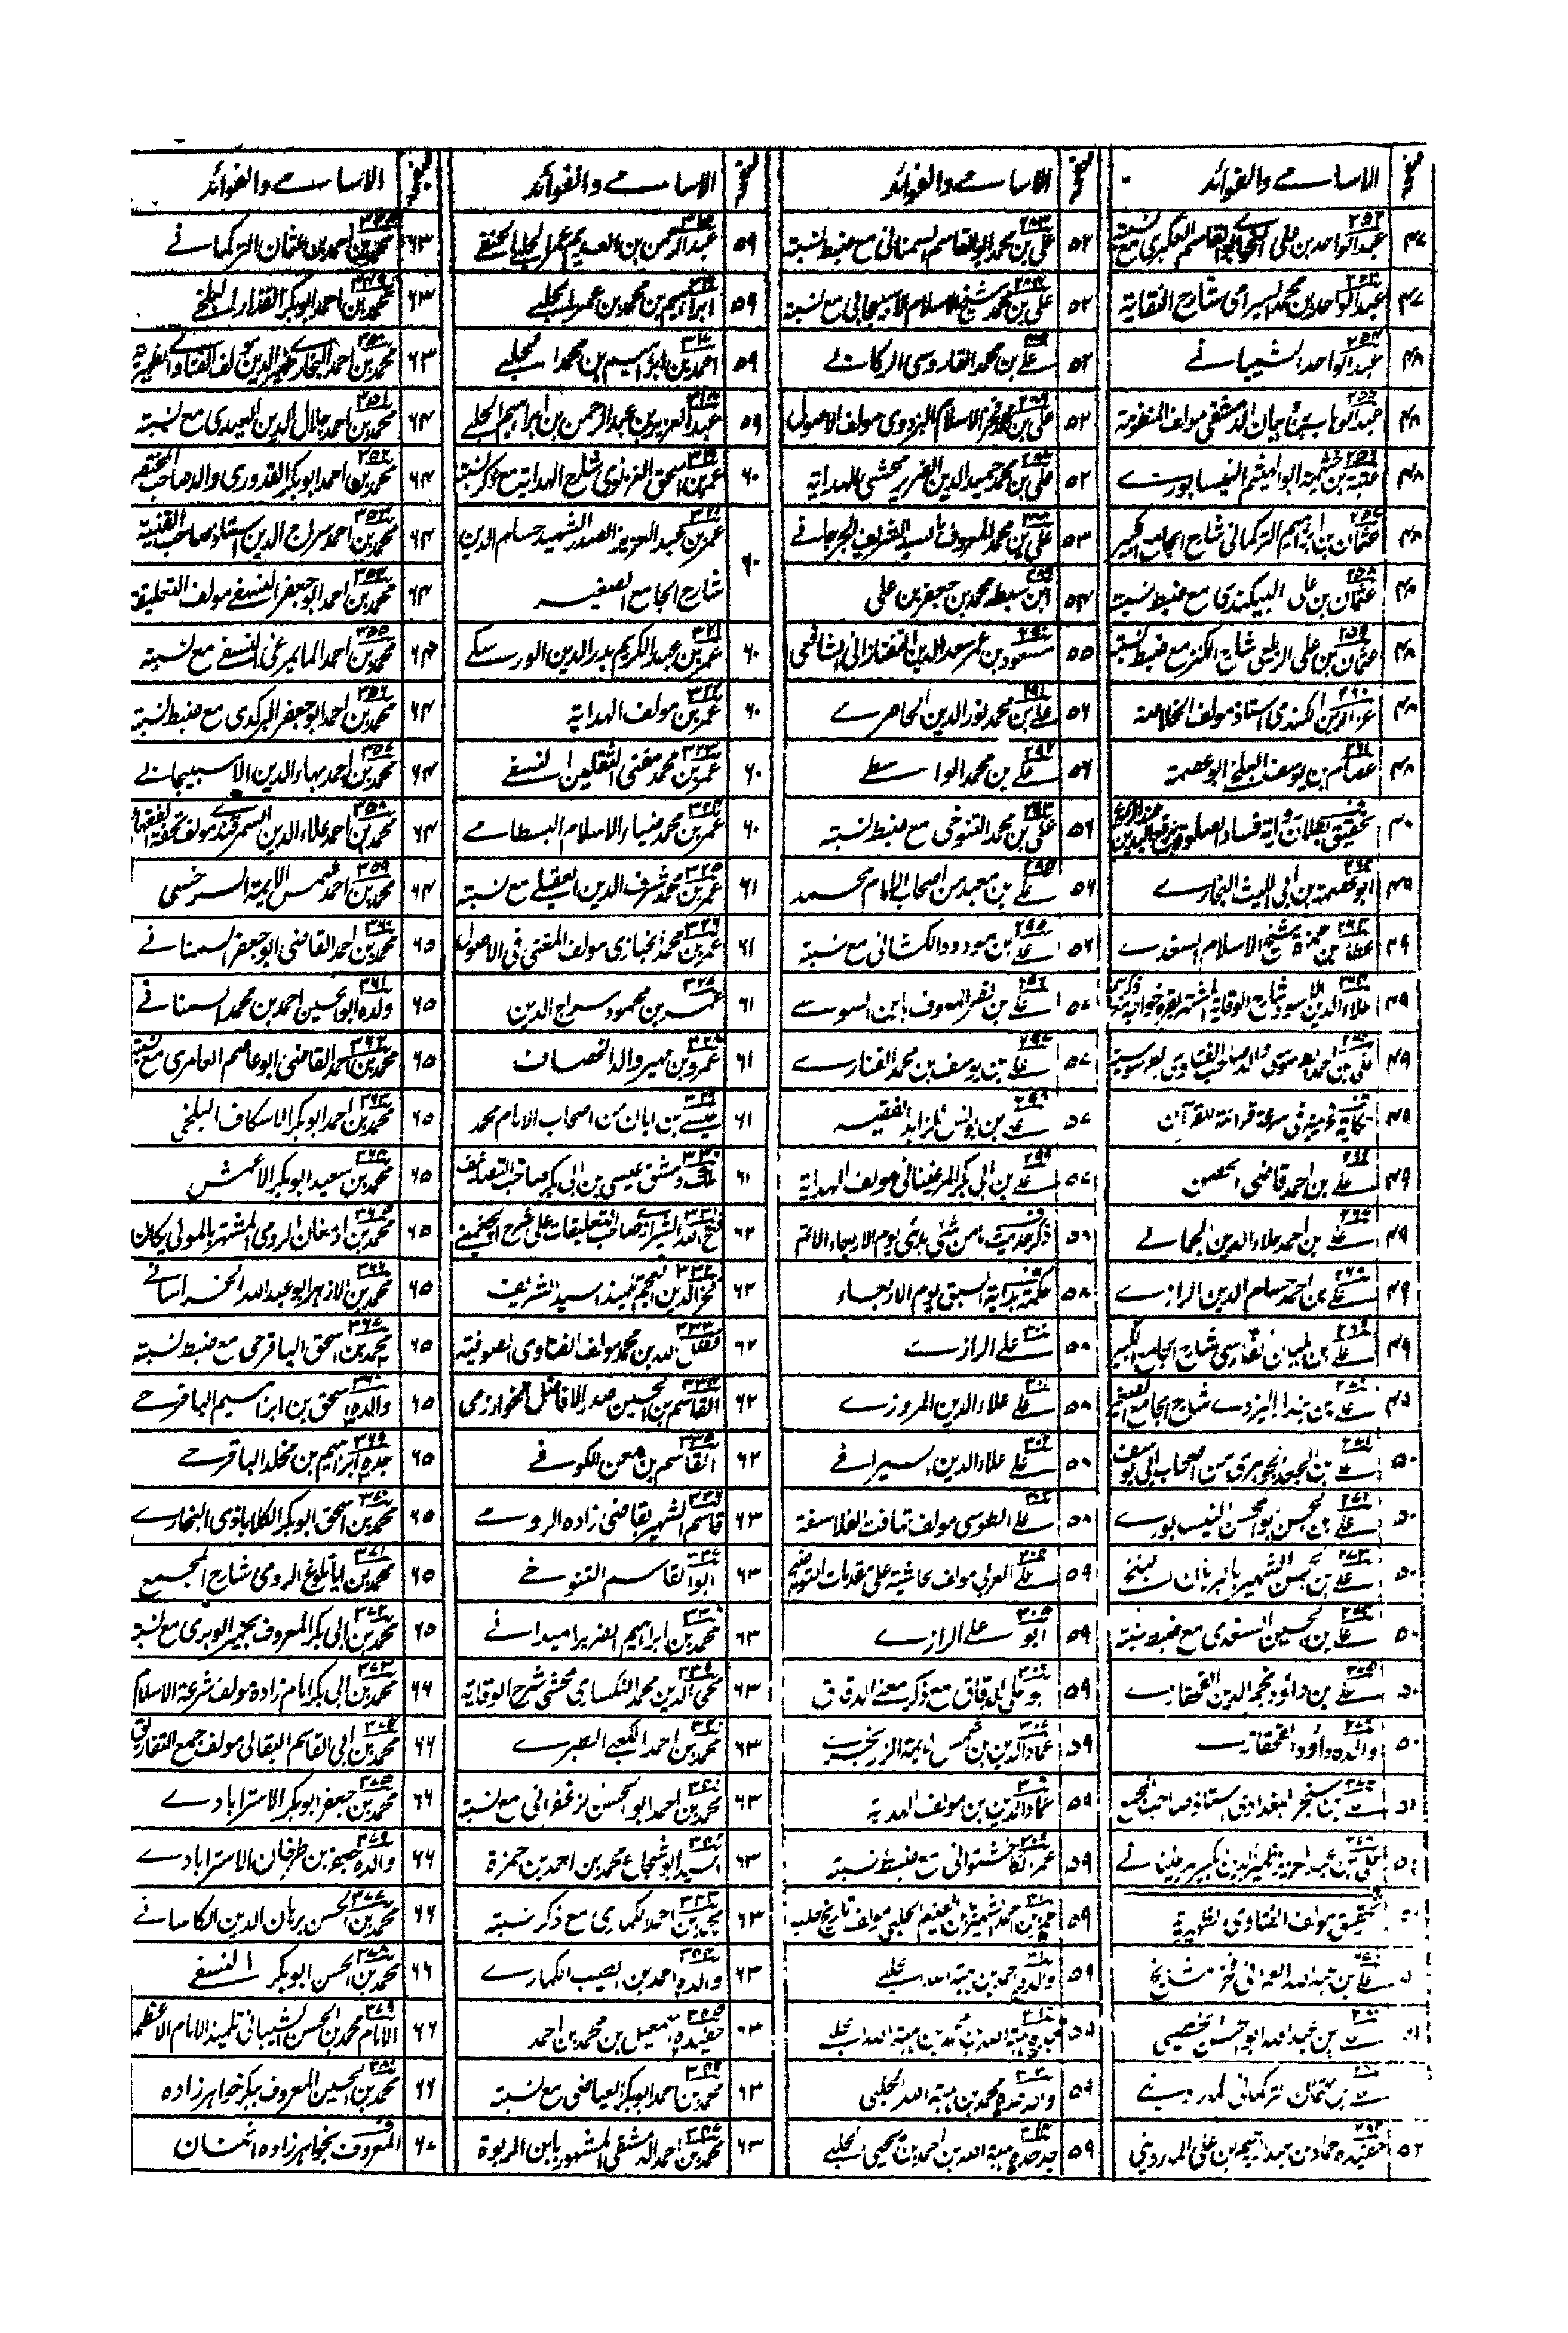 صفحہ الاسامے والفوائد
۴۷ عبدالواحد بن علی ابوالقاسم العکبری مع نسبتہ
۴۷ عبدالواحد بن محمد السیرامی شارح النقایة
۴۸ عبدالواحد الشیبانے
۴۸ عبدالوہاب بن وہبان الدمشقی مولف المنظومة
۴۸ عتبة بن خیثمة ابوالہیثم النیسابورے
۴۸ عثمان بن ابراہیم الترکمانی شارح الجامع الکبیر
۴۸ عثمان بن علی البیکندی مع ضبط نسبتہ
۴۸ عثمان بن علی الزیلعی شارح الکنز مع ضبط نسبتہ
۴۸ عزالدین الکندی استاذ مولف الخلاصة
۴۸ عصام بن یوسف البلخی ابوعصمة
۴۰ تحقیق بطلان روایة فساد الصلوة
۴۹ ابوعصمة بن ابی اللیث البخارے
۴۹ عطاء بن حمزة شیخ الاسلام السغدے
۴۹ علاءالدین الاسود شارح الوقایة
۴۹ علی بن احمد
۴۹ حکایة غریبة فی سرعة قراءة القرآن
۴۹ علے بن احمد قاضی الحصن
۴۹ علے بن احمد علاءالدین الجمالے
۴۹ علے بن احمد حسام الدین الرازے
۴۹ علے بن بلبان الفارسی شارح الجامع الکبیر
علے بن بندار الیزدے شارح الجامع الصغیر
۵۰ علے بن الجعد الجوہری من اصحاب ابی یوسف
۵۰ علے بن الحسن ابوالحسن النیسابورے
۵۰ علے بن الحسن الشہیر بالبرہان البلخی
۵۰ علے بن الحسین السغدی مع ضبط نسبتہ
۵۰ علے بن داود نجم الدین القحفازے
۵۰ والدہ داود القحفازے
۵۱ علے بن سنجر البغدادی استاذ صاحب المجمع
۵۱ علی بن عبدالعزیز ظہیرالدین الکبیر المرغینانے
تحقیق مولف الفتاوی الظہیریة
علے بن عبداللہ العمرانی فخر مشایخ
علے بن عبداللہ ابوالحسن الخطیبی
علے بن عثمان الترکمانی الماردینے
۵۲ حفیدہ حماد بن عبدالرحیم بن علی الماردینی
صفحہ الاسامے والفوائد
۵۲ علی بن محمد ابوالقاسم السمنانی مع ضبط نسبتہ
۵۲ علی بن محمد شیخ الاسلام الاسبیجابی مع نسبتہ
۵۲ علے بن محمد القاروسی الرکابے
۵۲ علی بن محمد فخرالاسلام البزدوی مولف الاصول
۵۲ علی بن محمد حمیدالدین الضریر محشی الہدایة
۵۳ علی بن محمد المعروف بالسید الشریف الجرجانے
۵۴ ابن سبطہ محمد بن جعفر بن علی
۵۵ مسعود بن عمر سعدالدین التفتازانی الشافعی
۵۶ علے بن محمد نورالدین الحاصرے
۵۶ علے بن محمد الواسطے
۵۶ علی بن محمد التنوخی مع ضبط نسبتہ
۵۶ علے بن معبد من اصحاب الامام محمد
۵۶ علے بن مودود الکشانی مع نسبتہ
۵۷ علے بن نصر المعروف بابن السوسے
۵۷ علے بن یوسف بن محمد الفنارے
۵۷ علے بن یونس الزاہد الفقیہ
۵۷ علے بن ابی بکر المرغینانی مولف الہدایة
۵۸ ذکر حدیث ما من شئی بدئی یوم الاربعاء الا تم
۵۸ حکمة بدایة السبق یوم الاربعاء
۵۸ علے الرازے
۵۸ علے علاءالدین المروزے
۵۸ علے علاءالدین السیرافے
۵۸ علے الطوسی مولف تہافت الفلاسفة
۵۹ علے العربی مولف حاشیة علی مقدمات التوضیح
۵۹ ابو علے الرازے
۵۹ بو علی الدقاق مع ذکر معنے الدقاق
۵۹ عمادالدین بن شمس الایمة الزرنجرے
۵۹ عمادالدین بن مولف الہدایة
۵۹ عمر الکاخشتوانی مع ضبط نسبتہ
۵۹ عمر بن احمد الشہیر بابن العدیم الحلبی مولف تاریخ حلب
۵۹ والدہ احمد بن ہبة اللہ الحلبے
۵۹ جدہ ہبة اللہ بن محمد بن ہبة اللہ الحلبے
۵۹ والد جدہ محمد بن ہبة اللہ الحلبی
۵۹ جد جدہ ہبة اللہ بن احمد بن یحیی الحلبے
صفحہ الاسامے والفوائد
۵۹ عبدالرحمن بن العدیم عمر الحلبے الحنفے
۵۹ ابراہیم بن محمد بن عمر الحلبے
۵۹ احمد بن ابراہیم بن محمد الحلبے
۵۹ عبدالعزیز بن عبدالرحمن بن ابراہیم الحلبے
۶۰ عمر بن اسحق الغزنوی شارح الہدایة مع ذکر نسبتہ
۶۰ عمر بن عبدالعزیز الصدر الشہید حسام الدین
شارح الجامع الصغیر
۶۰ عمر بن عبدالکریم بدرالدین الورسکے
۶۰ عمر بن مولف الہدایة
۶۰ عمر بن محمد مفتی الثقلین النسفے
۶۰ عمر بن محمد ضیاء الاسلام البسطامے
۶۱ عمر بن محمد شرف الدین العقیلے مع نسبتہ
۶۱ عمر بن محمد الخبازی مولف المغنی فی الاصول
۶۱ عمر بن محمود سراج الدین
۶۱ عمرو بن مہیر والد الخصاف
۶۱ عیسے بن ابان من اصحاب الامام محمد
۶۱ ملک دمشق عیسی بن ابی بکر صاحب التصانیف
۶۲ فتح اللہ الشیرازے صاحب التعلیقات علی شرح الچغمینے
۶۲ فخرالدین العجم تلمیذ السید الشریف
۶۲ فضل اللہ بن محمد مولف الفتاوی الصوفیة
۶۲ القاسم بن الحسین صدر الافاضل الخوارزمی
۶۲ القاسم بن معن الکوفے
۶۳ قاسم الشہیر بقاضی زادہ الرومے
۶۳ ابوالقاسم التنوخے
۶۳ محمد بن ابراہیم الضریر المیدانے
۶۳ محی الدین محمد النکساری محشی شرح الوقایة
۶۳ محمد بن احمد الکعبے البصرے
۶۳ محمد بن احمد ابوالحسن الزعفرانی مع نسبتہ
۶۳ السید ابو شجاع محمد بن احمد بن حمزة
۶۳ محمد بن احمد الکماری مع ذکر نسبتہ
۶۳ والدہ احمد بن الطیب الکمارے
۶۳ حفیدہ اسمعیل بن محمد بن احمد
۶۳ محمد بن احمد ابوبکر العیاضی مع نسبتہ
۶۳ محمد بن احمد الدمشقی المشہور بابن الربوة
صفحہ الاسامے والفوائد
۶۳ محمد بن احمد بن عثمان الترکمانے
۶۳ محمد بن احمد ابوبکر القفزاز البلخے
۶۳ محمد بن احمد البخارے ظہیرالدین مولف الفتاوے الظہیریة
۶۴ محمد بن احمد جلال الدین العیدی مع نسبتہ
۶۴ محمد بن احمد ابوبکر القدوری والد صاحب المختصر
۶۴ محمد بن احمد سراج الدین استاذ صاحب القنیة
۶۴ محمد بن احمد ابوجعفر النسفے مولف التعلیقة
۶۴ محمد بن احمد المایمرغی النسفے مع نسبتہ
۶۴ محمد بن احمد ابوجعفر البرکدی مع ضبط نسبتہ
۶۴ محمد بن احمد بہاءالدین الاسبیجابے
۶۴ محمد بن احمد علاءالدین السمرقندے مولف تحفة الفقہاء
۶۴ محمد بن احمد شمس الایمة السرخسی
۶۵ محمد بن احمد القاضی ابوجعفر السمنانے
۶۵ ولدہ ابوالحسین احمد بن محمد السمنانے
۶۵ محمد بن احمد القاضی ابوعاصم العامری مع نسبتہ
۶۵ محمد بن احمد ابوبکر الاسکاف البلخی
۶۵ محمد بن سعید ابوبکر الاعمش
۶۵ محمد بن ادمغان الرومی المشتہر بالمولی یکان
۶۵ محمد بن الازہر ابو عبداللہ الخراسانے
۶۵ محمد بن اسحق الباقرحی مع ضبط نسبتہ
۶۵ والدہ اسحق بن ابراہیم الباقرحے
۶۵ جدہ ابراہیم بن مخلد الباقرحے
۶۵ محمد بن اسحق ابوبکر الکلاباذی البخارے
۶۵ محمد بن ایاتلوغ الرومی شارح المجمع
۶۵ محمد بن ابی بکر المعروف بخمیر الوبری مع نسبتہ
۶۶ محمد بن ابی بکر امام زادہ مولف شرعة الاسلام
۶۶ محمد بن ابی القاسم البقالی مولف جمع التفاریق
۶۶ محمد بن جعفر ابوبکر الاسترابادے
۶۶ والدہ جعفر بن طرخان الاسترابادے
۶۶ محمد بن الحسن برہان الدین الکاسانے
۶۶ محمد بن الحسن ابوبکر النسفے
۶۶ الامام محمد بن الحسن الشیبانی تلمیذ الامام الاعظم
۶۶ محمد بن الحسین المعروف ببکر خواہرزادہ
۶۷ المعروف بخواہرزادہ اثنان